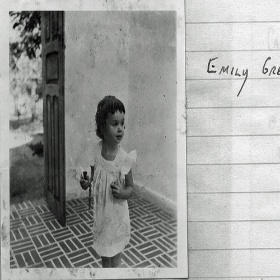 EMILY GRE